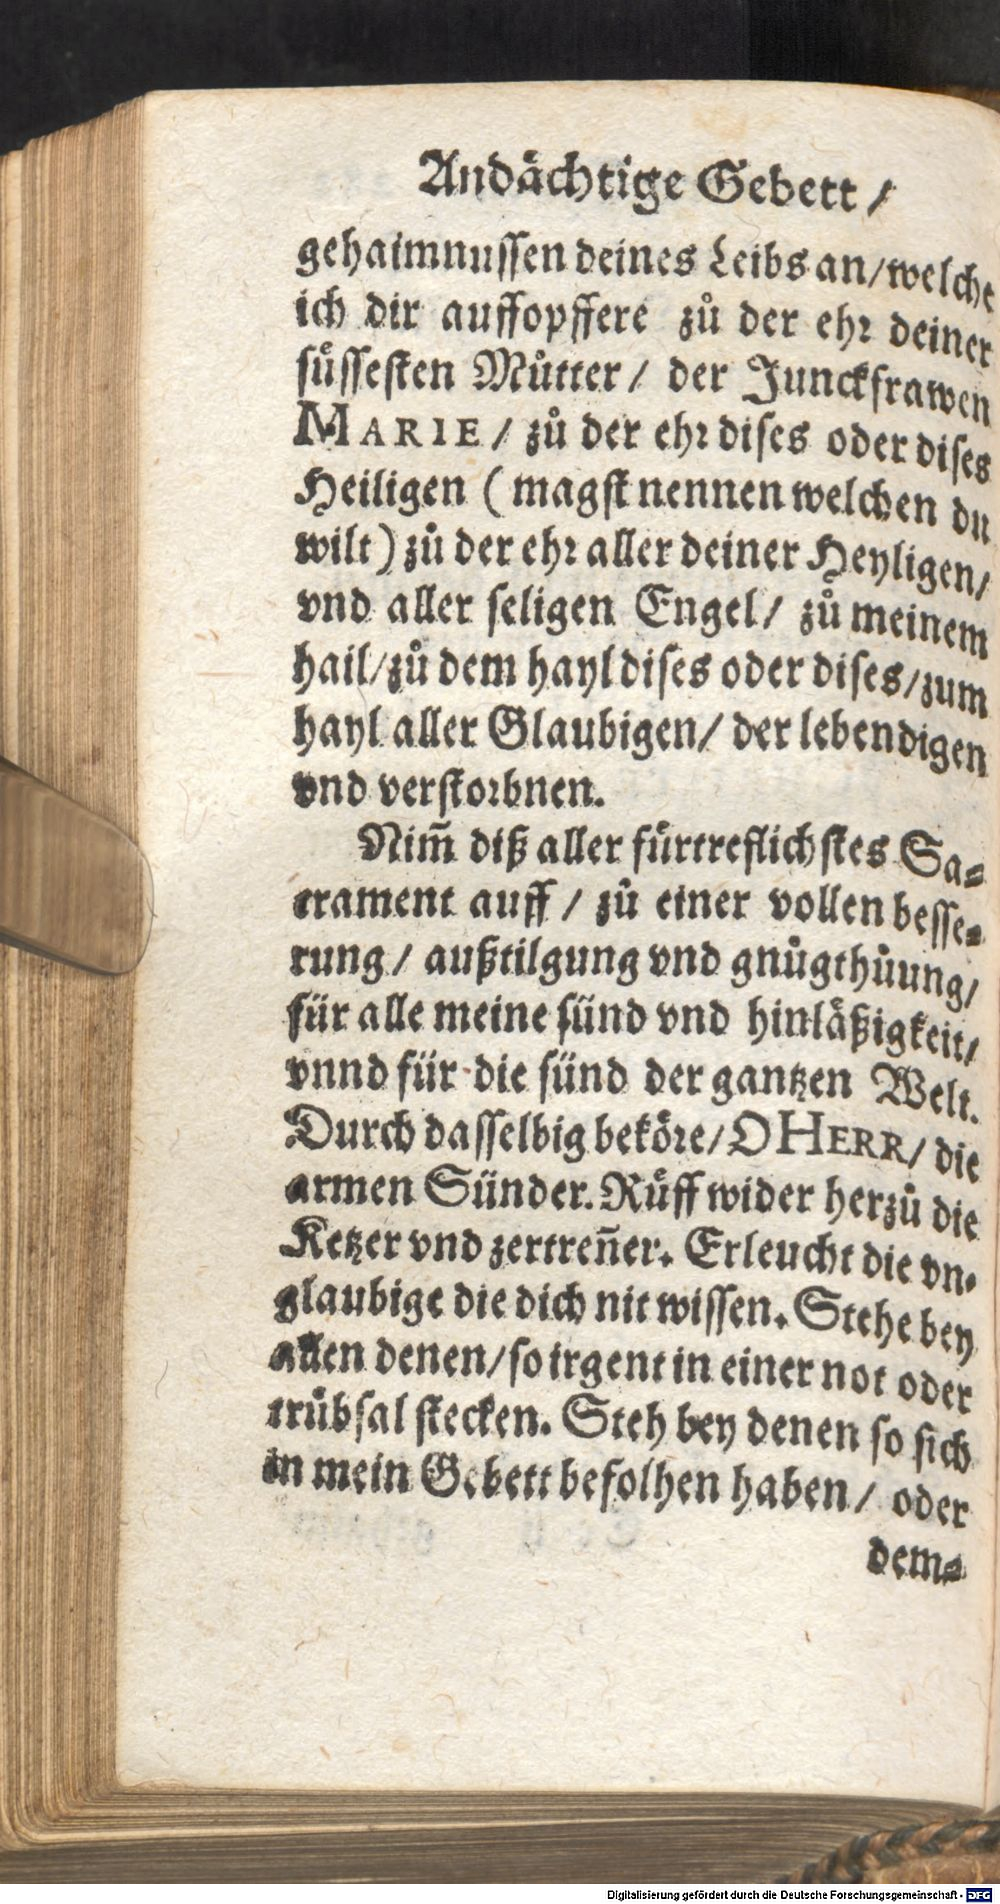 Andächtige Gebett /
gehaimnussen deines Leibs an/welche
ich dir auffopffere zů der ehr deiner
süssesten Můtter / der Junckfrawen
MARIE / zů der ehr dises oder dises
Heiligen ( magst nennen welchen du
wilt) zů der ehr aller deiner Heyligen/
vnd aller seligen Engel/ zů meinem
hail/zů dem hayl dises oder dises/zum
hayl aller Glaubigen/ der lebendigen
vnd verstorbnen.
Nim̄ diß aller fürtreflichstes Sa-
crament auff / zů einer vollen besse-
rung / außtilgung vnd gnůgthůung/
für alle meine sünd vnd hinläßigkeit/
vnnd für die sünd der gantzen Welt.
Durch dasselbig beköre/O HERR/ die
armen Sünder. Rüff wider herzů die
Ketzer vnd zertren̄er. Erleucht die vn-
glaubige die dich nit wissen. Stehe bey
allen denen/so irgent in einer not oder
trůbsal stecken. Steh bey denen so sich
in mein Gebett befolhen haben / oder
dem-
Digitalisierung gefördert durch die Deutsche Forschungsgemeinschaft - DFG